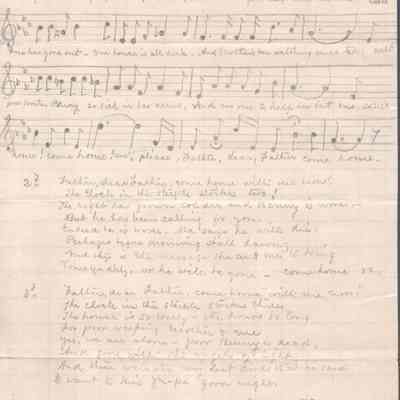 fire has gone out - Our house is all dark - And Mother's been watching since tea, with
poor brother Benny so sick in her arms, And no one to help her but me, come
home! come home! Come, please, Father, dear, Father come home.
2nd Father, dear Father, come home with me now!
The clock in the steeple strikes two;
The night has grown colder and Benny is worse -
But he has been calling for you.
Indeed he is worse - Ma says he will die,
Perhaps before morning shall dawn;
And this is the message she sent me to bring
Come quickly, or he will be gone - come home &c.
3rd Father, dear Father, come home with me now!
The clock in the steeple strikes three;
The house is so lonely - the hours so long
For poor weeping Mother & me
Yes, we are alone - poor Benny is dead,
And gone with the angels of light
And these were the very last words that he said
I want to kiss Papa good night.